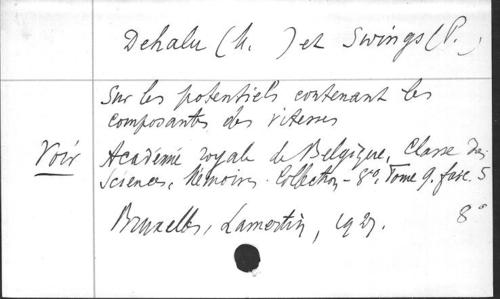 Dehalu (M. ) et Swings (P.)
Sur les potentiels contenant les
composantes des vitesses
Voir Académie royale de Belgique, Classe des
Sciences, Mémoires. Collection - 8º. Tome 9. fasc. 5
Bruxelles, Lamertin, 1927. 8º